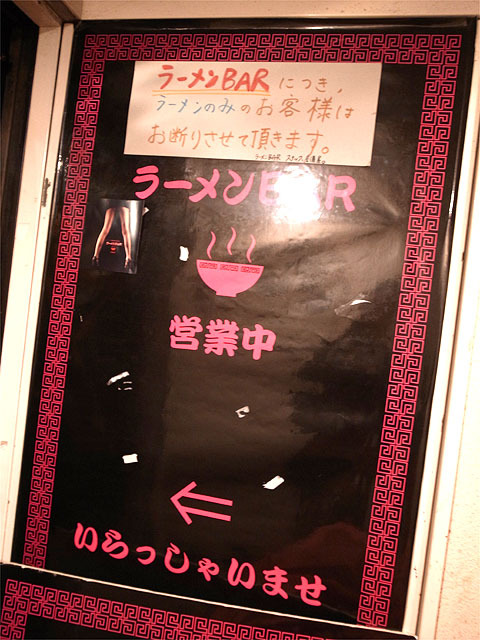 ラーメンBARにつき、
ラーメンのみのお客様は
お断りさせて頂きます。
ラーメンBAR
営業中
いらっしゃいませ